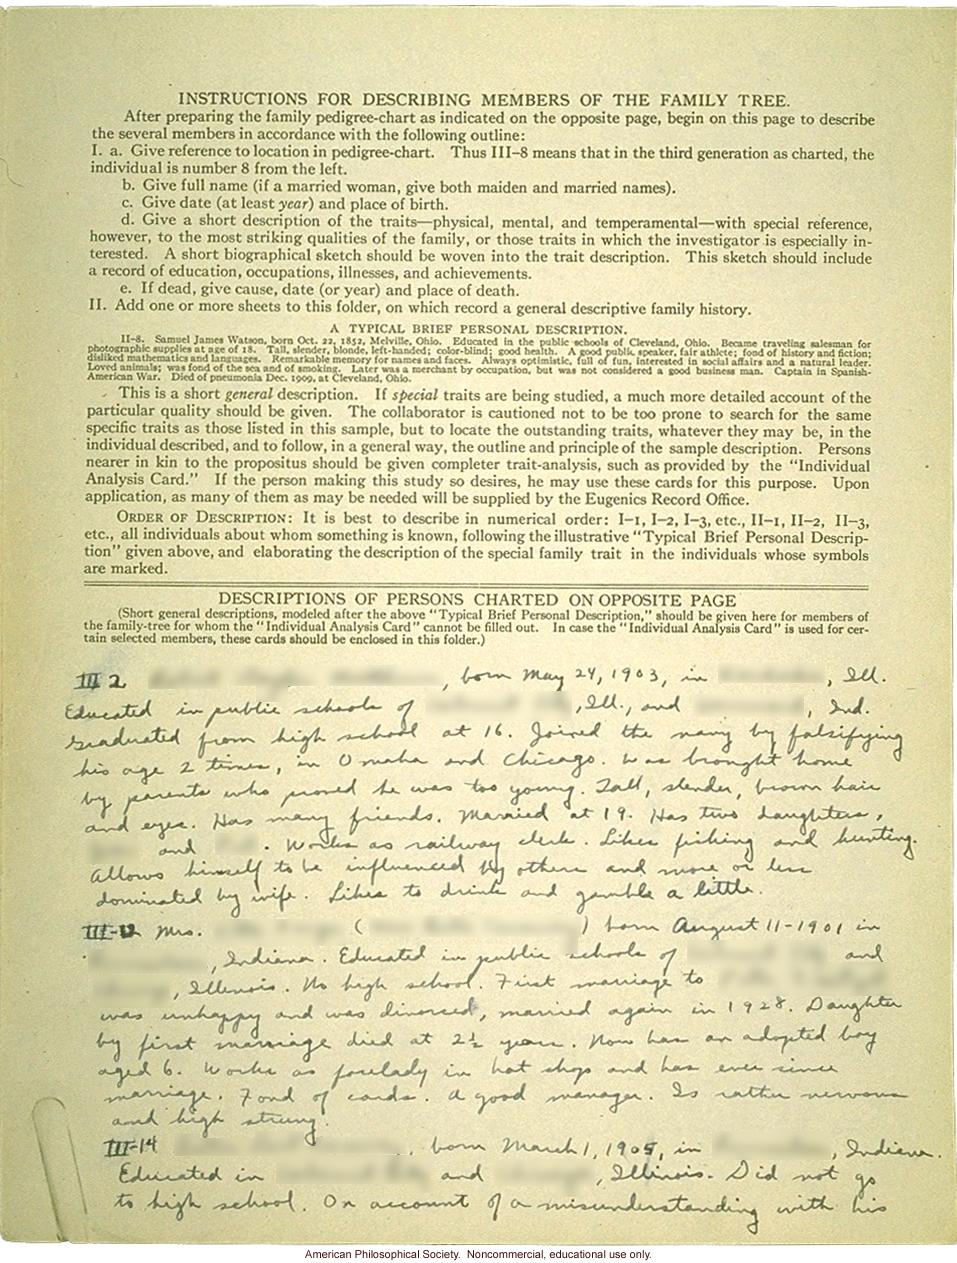 INSTRUCTIONS FOR DESCRIBING MEMBERS OF THE FAMILY TREE.
After preparing the family pedigree-chart as indicated on the opposite page, begin on this page to describe
the several members in accordance with the following outline:
I. a. Give reference to location in pedigree-chart. Thus III-8 means that in the third generation as charted, the
individual is number 8 from the left.
b. Give full name (if a married woman, give both maiden and married names).
c. Give date (at least year) and place of birth.
d. Give a short description of the traits—physical, mental, and temperamental—with special reference,
however, to the most striking qualities of the family, or those traits in which the investigator is especially in-
terested. A short biographical sketch should be woven into the trait description. This sketch should include
a record of education, occupations, illnesses, and achievements.
e. If dead, give cause, date (or year) and place of death.
II. Add one or more sheets to this folder, on which record a general descriptive family history.
A TYPICAL BRIEF PERSONAL DESCRIPTION.
II-8. Samuel James Watson, born Oct. 22, 1852, Melville, Ohio. Educated in the public schools of Cleveland, Ohio. Became traveling salesman for
photographic supplies at age of 18. Tall, slender, blonde, left-handed; color-blind; good health. A good public speaker, fair athlete; fond of history and fiction;
disliked mathematics and languages. Remarkable memory for names and faces. Always optimistic, full of fun, interested in social affairs and a natural leader.
Loved animals; was fond of the sea and of smoking. Later was a merchant by occupation, but was not considered a good business man. Captain in Spanish-
American War. Died of pneumonia Dec. 1909, at Cleveland, Ohio.
This is a short general description. If special traits are being studied, a much more detailed account of the
particular quality should be given. The collaborator is cautioned not to be too prone to search for the same
specific traits as those listed in this sample, but to locate the outstanding traits, whatever they may be, in the
individual described, and to follow, in a general way, the outline and principle of the sample description. Persons
nearer in kin to the propositus should be given completer trait-analysis, such as provided by the "Individual
Analysis Card." If the person making this study so desires, he may use these cards for this purpose. Upon
application, as many of them as may be needed will be supplied by the Eugenics Record Office.
ORDER OF DESCRIPTION: It is best to describe in numerical order: I-1, I-2, I-3, etc., II-1, II-2, II-3,
etc., all individuals about whom something is known, following the illustrative "Typical Brief Personal Descrip-
tion" given above, and elaborating the description of the special family trait in the individuals whose symbols
are marked.
DESCRIPTIONS OF PERSONS CHARTED ON OPPOSITE PAGE
(Short general descriptions, modeled after the above "Typical Brief Personal Description," should be given here for members of
the family-tree for whom the "Individual Analysis Card" cannot be filled out. In case the "Individual Analysis Card" is used for cer-
tain selected members, these cards should be enclosed in this folder.)
III 2 , born May 24, 1903, in , Ill.
Educated in public schools of , Ill., and , Ind.
Graduated from high school at 16. Joined the navy by falsifying
his age 2 times, in Omaha and Chicago. Was brought home
by parents who proved he was too young. Tall, slender, brown hair
and eyes. Has many friends. Married at 19. Has two daughters,
and . Works as railway clerk. Likes fishing and hunting.
Allows himself to be influenced by others and more or less
dominated by wife. Likes to drink and gamble a little.
III-12 Mrs. ( ) born August 11-1901 in
, Indiana. Educated in public schools of and
, Illinois. No high school. First marriage to
was unhappy and was divorced, married again in 1928. Daughter
by first marriage died at 2½ years. Now has an adopted boy
aged 6. Works as forelady in hat shop and has ever since
marriage. Fond of cards. A good manager. Is rather nervous
and high strung.
III-14 , born March 1, 1905, in , Indiana.
Educated in and , Illinois. Did not go
to high school. On account of a misunderstanding with his
American Philosophical Society. Noncommercial, educational use only.